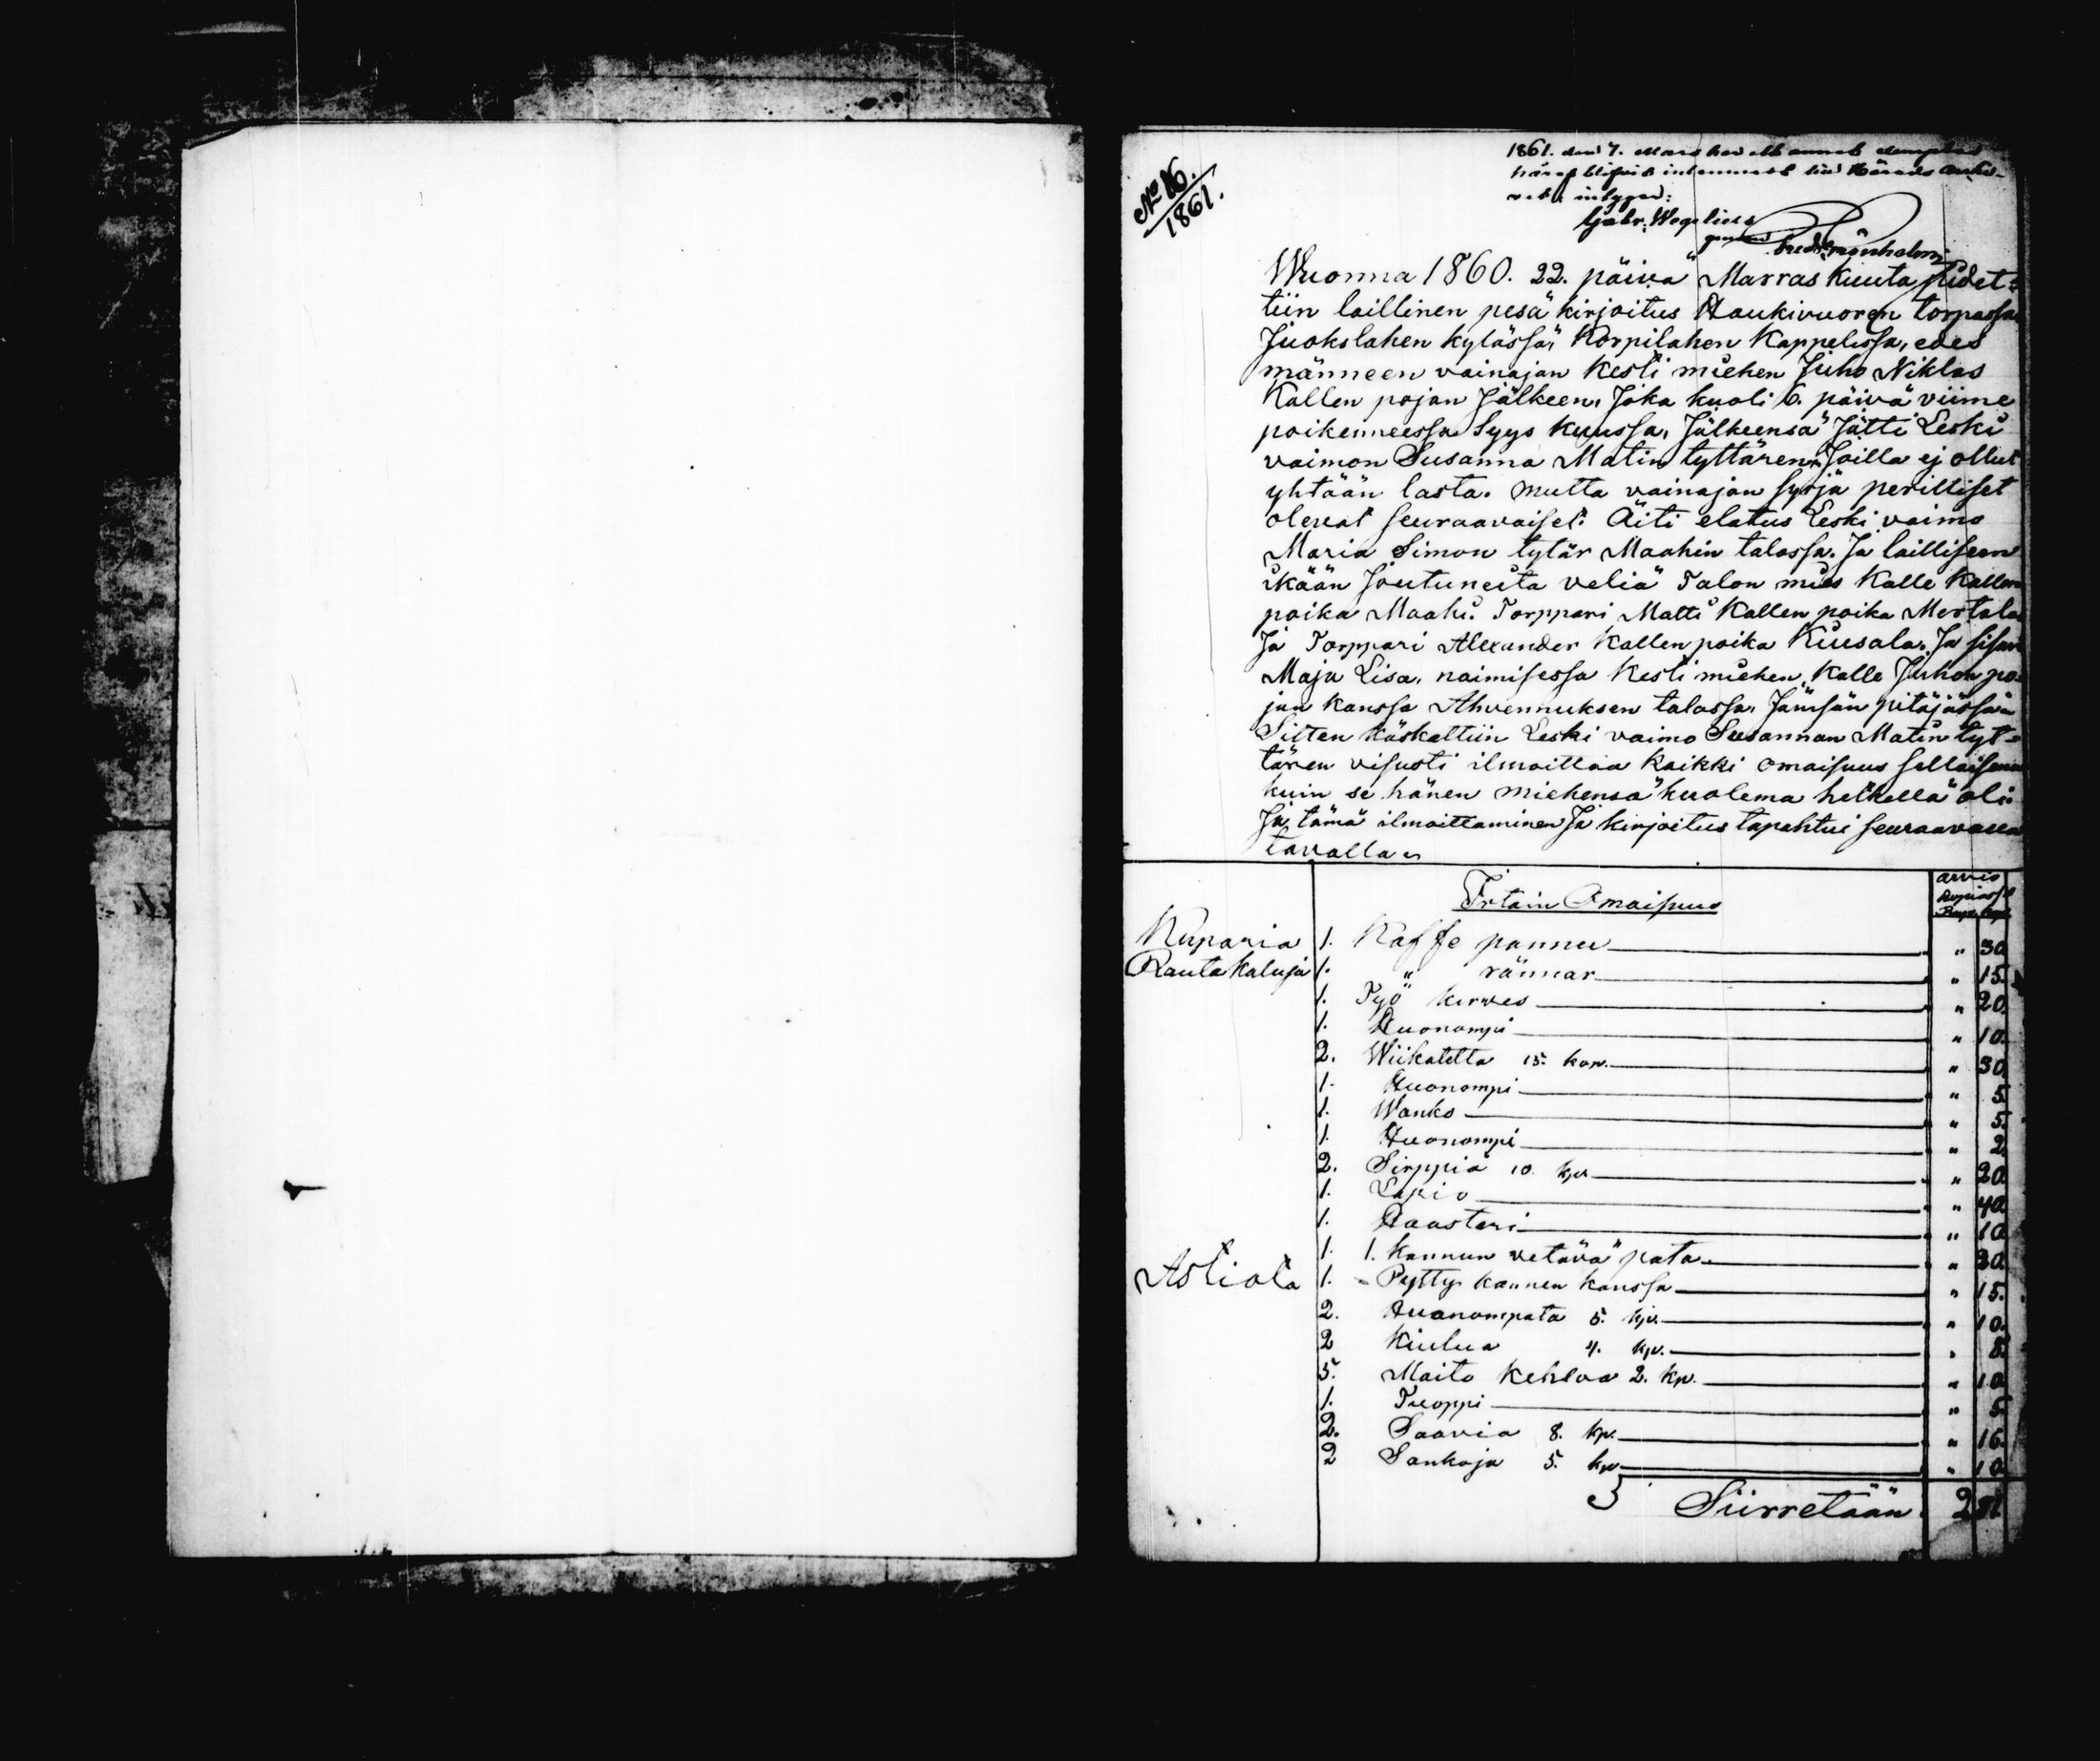 No 16.
1861.
1861. den 7. Mars har ett annat exemplar
häraf blifvit inlemnadt till Härads Arki-
vet, intygar:
Gabr. Wegelius
Wuonna 1860. 22. päivä Marras kuuta pidet=
tiin laillinen pesä kirjoitus Haukivuoren torpassa
Juokslahen kylässä, Korpilahen Kappelissa, edes
männeen vainajan Kesti miehen Juho Niklas
Kallen pojan Jälkeen, Joka kuoli 6. päivä viime
poikenneessa Syys kuussa, Jälkeensä Jätti Leski
vaimon Susanna Matin tyttären, Joilla ej ollut
yhtään lasta. mutta vainajan syrjä perilliset
olevat seuraavaiset: Äiti elatus Leski vaimo
Maria Simon tytär Maahin talossa. Ja lailliseen
ikään Joutuneita veliä Talon mies Kalle Kallen
poika Maahi. Torppari Matti Kallen poika Mertala
Ja Torppari Alexander Kallen poika Kuusala. Ja sisar
Maja Lisa, naimisessa Kesti miehen Kalle Juhon po=
jan kanssa Ahvennuksen talossa, Jämsän pitäjässä.
Sitten käskettiin Leski vaimo Susannan Matin tyt=
tären visusti ilmoittaa kaikki omaisuus sellaisena
kuin se hänen miehensä kuolema hetkellä oli.
Ja tämä ilmoittaminen Ja kirjoitus tapahtui seuraavalla
tavalla.
Irtain Omaisuus
arvio
Rup. kop.
Kuparia 1. Kaffe pannu " 30.
Rauta kaluja 1. " rännar " 15.
1. Työ kirves " 20.
1. Huonompi " 10.
2. Wiikatetta 15. kop. " 30.
1. Huonompi " 5.
1. Wanko " 5.
1. Huonompi " 2.
2. Sirppiä 10. kp. " 20.
1. Lapio " 40.
1. Haasteri " 10.
1. 1. kannun vetävä pata " 30.
Astiata 1. Pytty kannen kanssa " 15.
2. Huonompata 5. kp. " 10.
2 Kiulua 4. kp. " 8.
5. Maito Kehloa 2. kp. " 10.
1. Tuoppi " 5.
2. Saavia 8. kp. " 16.
2 Sankoja 5. kp " 10.
Siirretään 2 91.